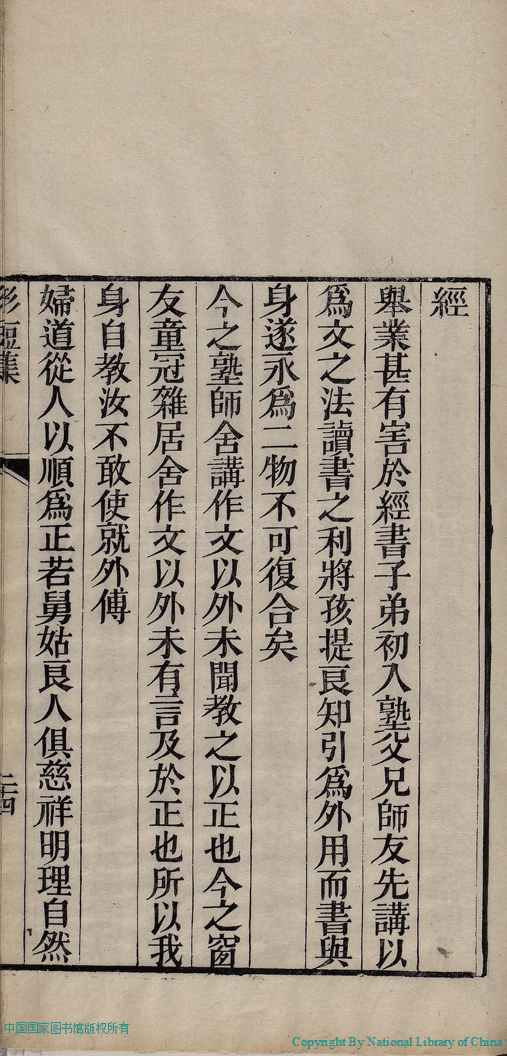 經
舉業甚有害於經書子弟初入塾父兄師友先講以
爲文之法讀書之利將孩提良知引爲外用而書與
身遂永爲二物不可復合矣
今之塾師舍講作文以外未聞教之以正也今之窗
友童冠雜居舍作文以外未有言及於正也所以我
身自教汝不敢使就外傅
婦道從人以順爲正若舅姑良人俱慈祥明理自然
短集
二十四
中国国家图书馆版权所有
Copyright By National Library of China